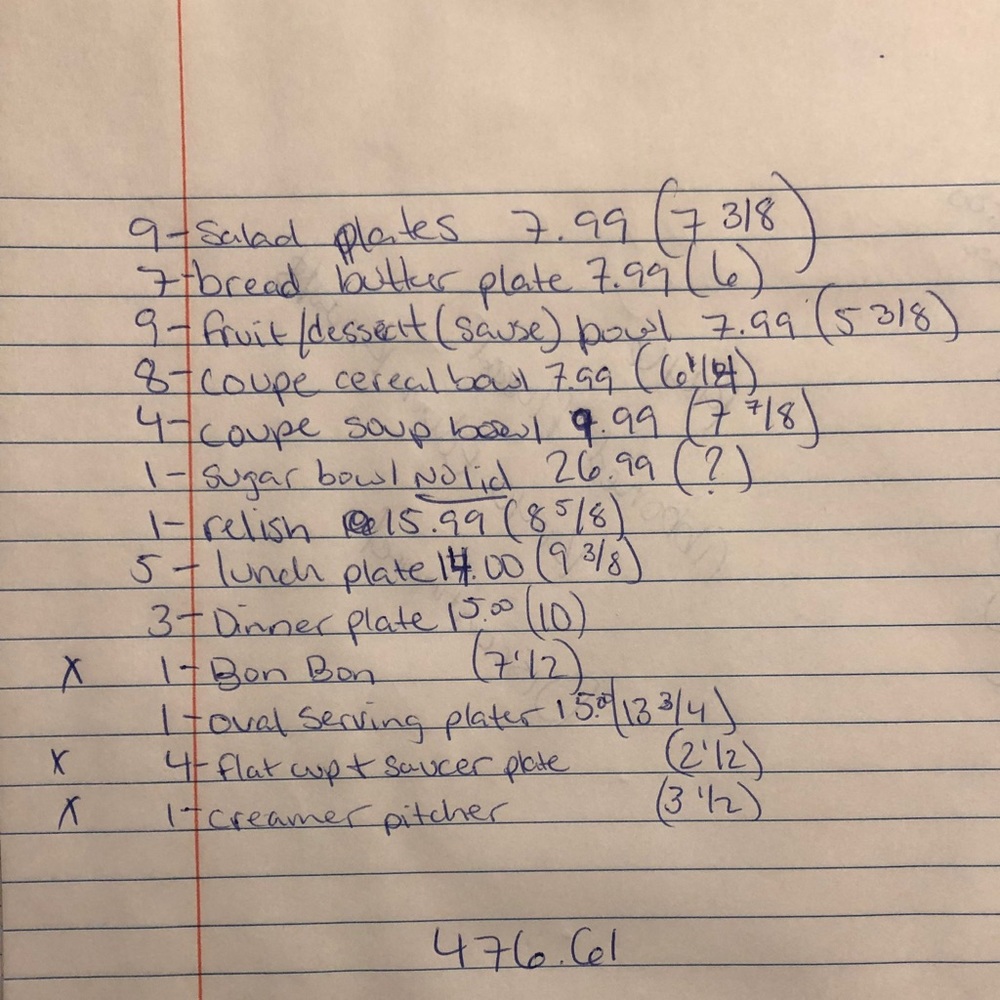 9-Salad plates 7.99 (7 3/8)
7-bread butter plate 7.99 (6)
9-fruit/dessert (sause) bowl 7.99 (5 3/8)
8-coupe cereal bowl 7.99 (6 1/4)
4-coupe soup bowl 9.99 (7 7/8)
1-sugar bowl No lid 26.99 (?)
1-relish 15.99 (8 5/8)
5-lunch plate 14.00 (9 3/8)
3-Dinner plate 15.00 (10)
X 1-Bon Bon (7 1/2)
1-oval serving plater 15.00 (13 3/4)
X 4-flat cup + saucer plate (2 1/2)
X 1-creamer pitcher (3 1/2)
476.61